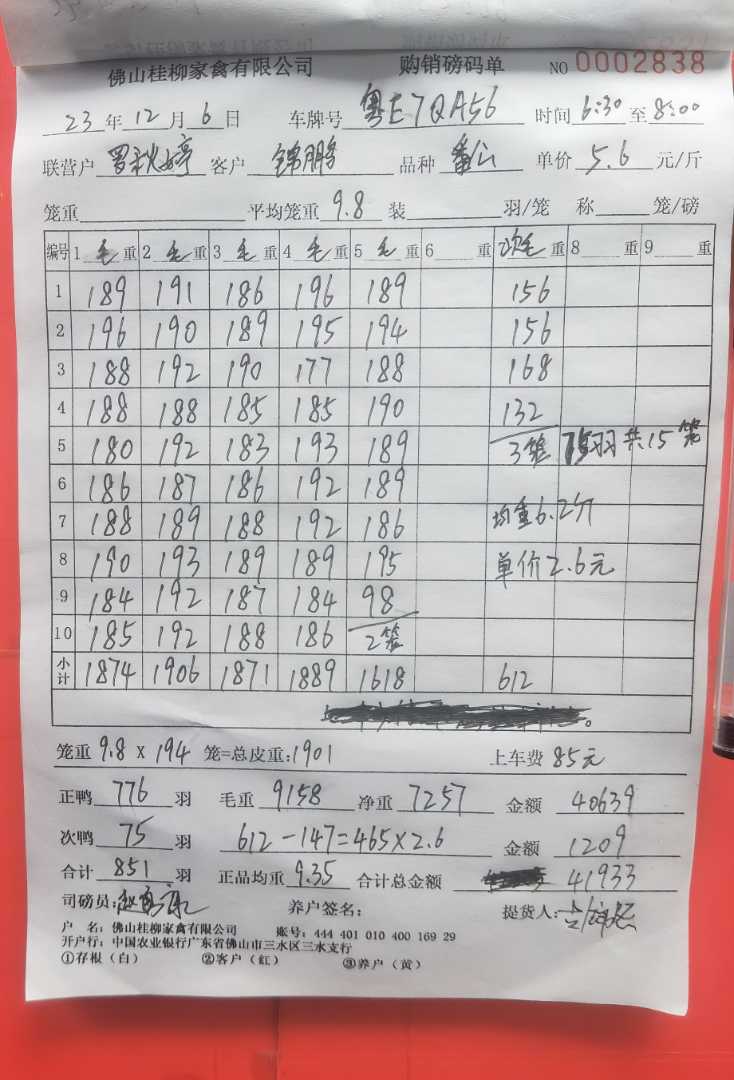 佛山桂柳家禽有限公司 购销磅码单 NO 0002838
23年12月6日 车牌号 粤E7QA56 时间 6:30至8:00
联营户 罗秋婷 客户 锦鹏 品种 番公 单价 5.6 元/斤
笼重 平均笼重 9.8 装 羽/笼 称 笼/磅
编号 1 毛重 2 毛重 3 毛重 4 毛重 5 毛重 6 重 次毛重 8 重 9 重
1 189 191 186 196 189 156
2 196 190 189 195 194 156
3 188 192 190 177 188 168
4 188 188 185 185 190 132
5 180 192 183 193 189 3笼 75羽共15笼
6 186 187 186 192 189
7 188 189 188 192 186 均重6.2斤
8 190 193 189 189 195 单价2.6元
9 184 192 187 184 98
10 185 192 188 186 2笼
小计 1874 1906 1871 1889 1618 612
笼重 9.8 x 194 笼=总皮重:1901 上车费 85元
正鸭 776 羽 毛重 9158 净重 7257 金额 40639
次鸭 75 羽 612-147=465x2.6 金额 1209
合计 851 羽 正品均重 9.35 合计总金额 41933
司磅员: 养户签名: 提货人:
户 名:佛山桂柳家禽有限公司 账号:444 401 010 400 169 29
开户行:中国农业银行广东省佛山市三水区三水支行
①存根(白) ②客户(红) ③养户(黄)